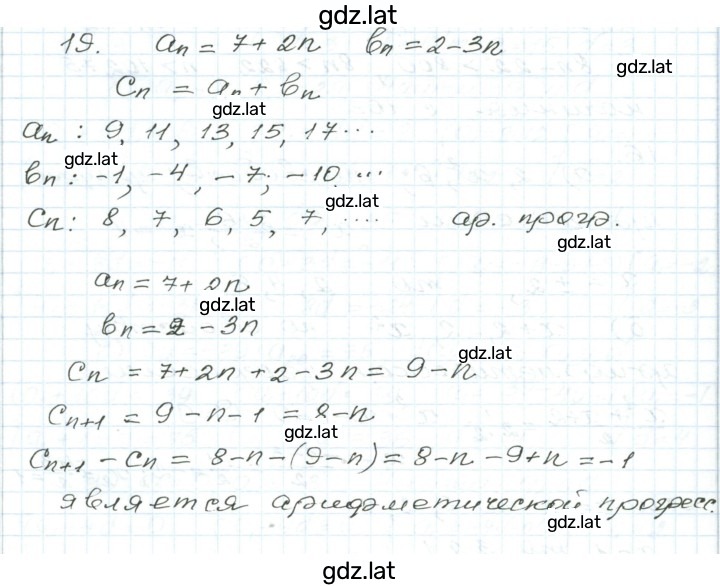 gdz.lat
19. aₙ = 7 + 2n вₙ = 2 - 3n
gdz.lat
Cₙ = aₙ + вₙ
gdz.lat
aₙ : 9, 11, 13, 15, 17...
gdz.lat
вₙ : -1, -4, -7, -10...
gdz.lat
Cₙ : 8, 7, 6, 5, 7, .... ар. прогр.
gdz.lat
aₙ = 7 + 2n
gdz.lat
вₙ = 2 - 3n
gdz.lat
Cₙ = 7 + 2n + 2 - 3n = 9 - n
Cₙ₊₁ = 9 - n - 1 = 8 - n
gdz.lat
Cₙ₊₁ - Cₙ = 8 - n - (9 - n) = 8 - n - 9 + n = -1
является арифметической прогресс.
gdz.lat
gdz.lat